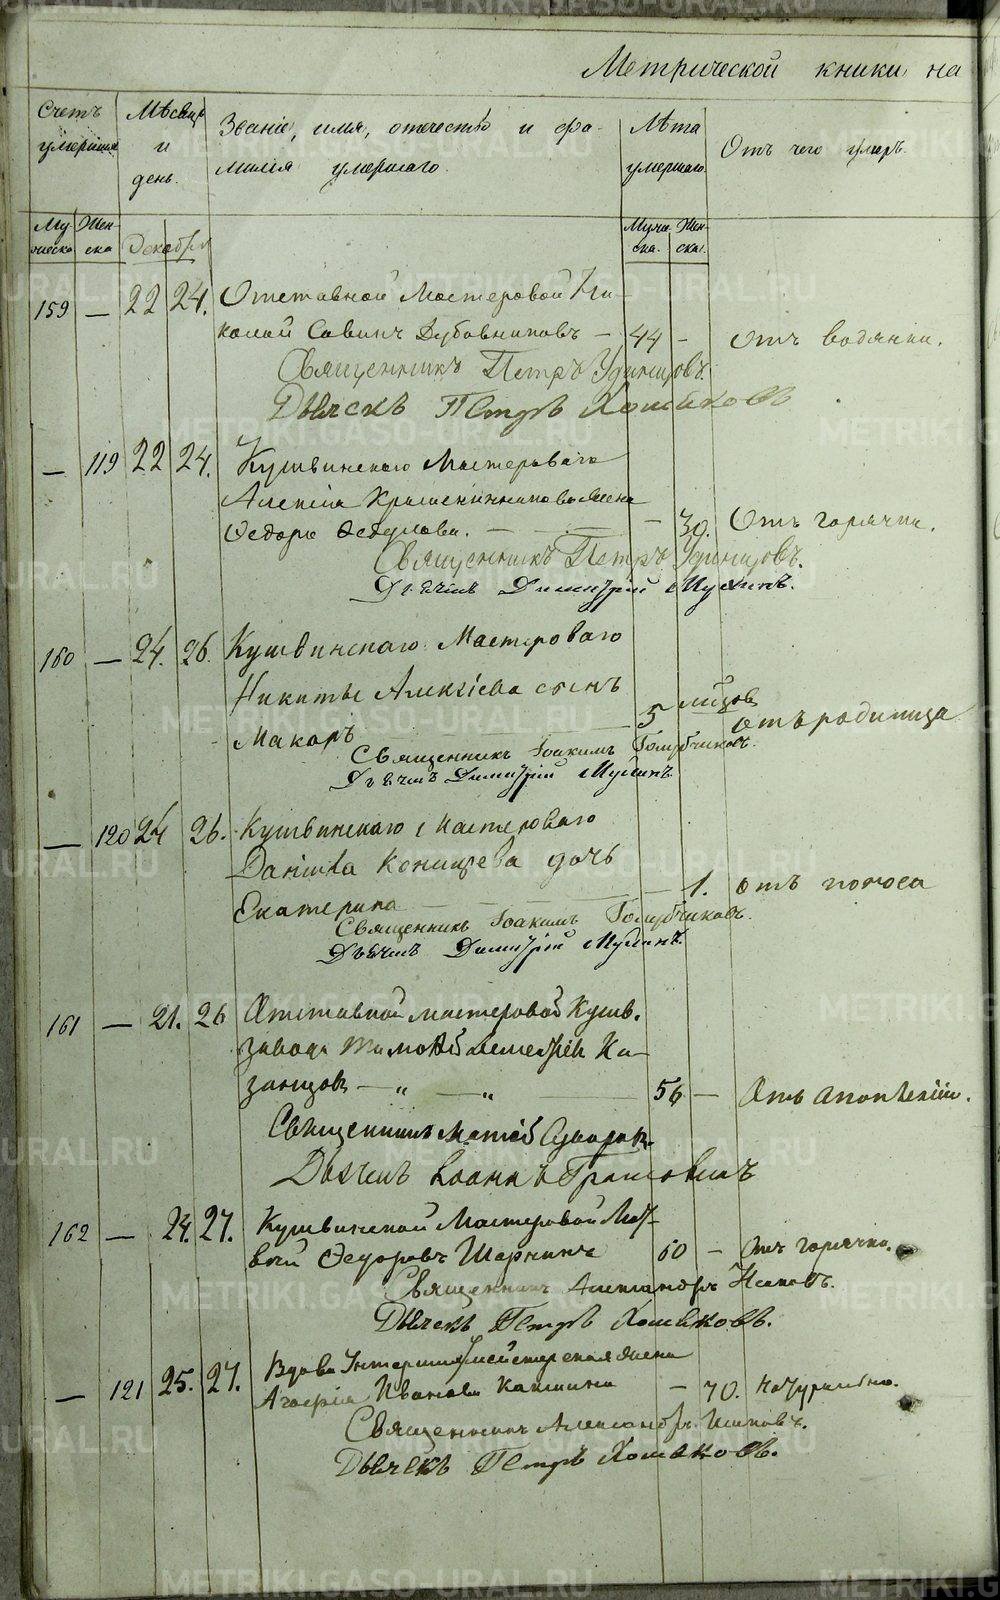 Метрической книги на
Счетъ умершихъ
Мѣсяцъ и день.
Званіе, имя, отечество и фа-
милія умершаго.
Лѣта умершаго.
Отъ чего умеръ.
Му-
жеска
Жен-
ска
Декабря
Муже-
ска.
Жен-
ска.
159 — 22 24. Отставной Мастеровой Ни-
колай Савинъ Дубовниковъ — 44 — Отъ водянки.
Священникъ Петръ Удинцовъ.
Дьячекъ Петръ Хомяковъ
— 119 22 24. Кушвинскаго Мастероваго
Алексѣя Крашенинникова жена
Ѳедора Ѳедулова. — — 30. Отъ горячки.
Священникъ Петръ Удинцовъ.
Дьячекъ Димитрій Мухинъ.
160 — 24. 26. Кушвинскаго Мастероваго
Никиты Алексѣева сынъ
Макаръ 5 отъ родимца
Священникъ Іоакимъ Голубчиковъ.
Дьячекъ Димитрій Мухинъ
— 120 24 26. Кушвинскаго Мастероваго
Данила Конищева дочь
Екатерина — 1. отъ поноса
Священникъ Іоакимъ Голубчиковъ.
Дьячекъ Димитрій Мухинъ.
161 — 21. 26 Отставной мастеровой Кушв.
завода Тимофей Ка-
занцовъ — „ — „ 56 — Отъ апоплексіи.
Священникъ
Дьячекъ Іоаннъ
162 — 24. 27. Кушвинской Мастеровой Мат-
вѣй Ѳедоровъ 60 — Отъ горячки.
Священникъ Александръ
Дьячекъ Петръ Хомяковъ.
— 121 25. 27. Вдова жена
Агафія Иванова — 70. Натурально.
Священникъ Александръ
Дьячекъ Петръ Хомяковъ.
METRIKI.GASO-URAL.RU